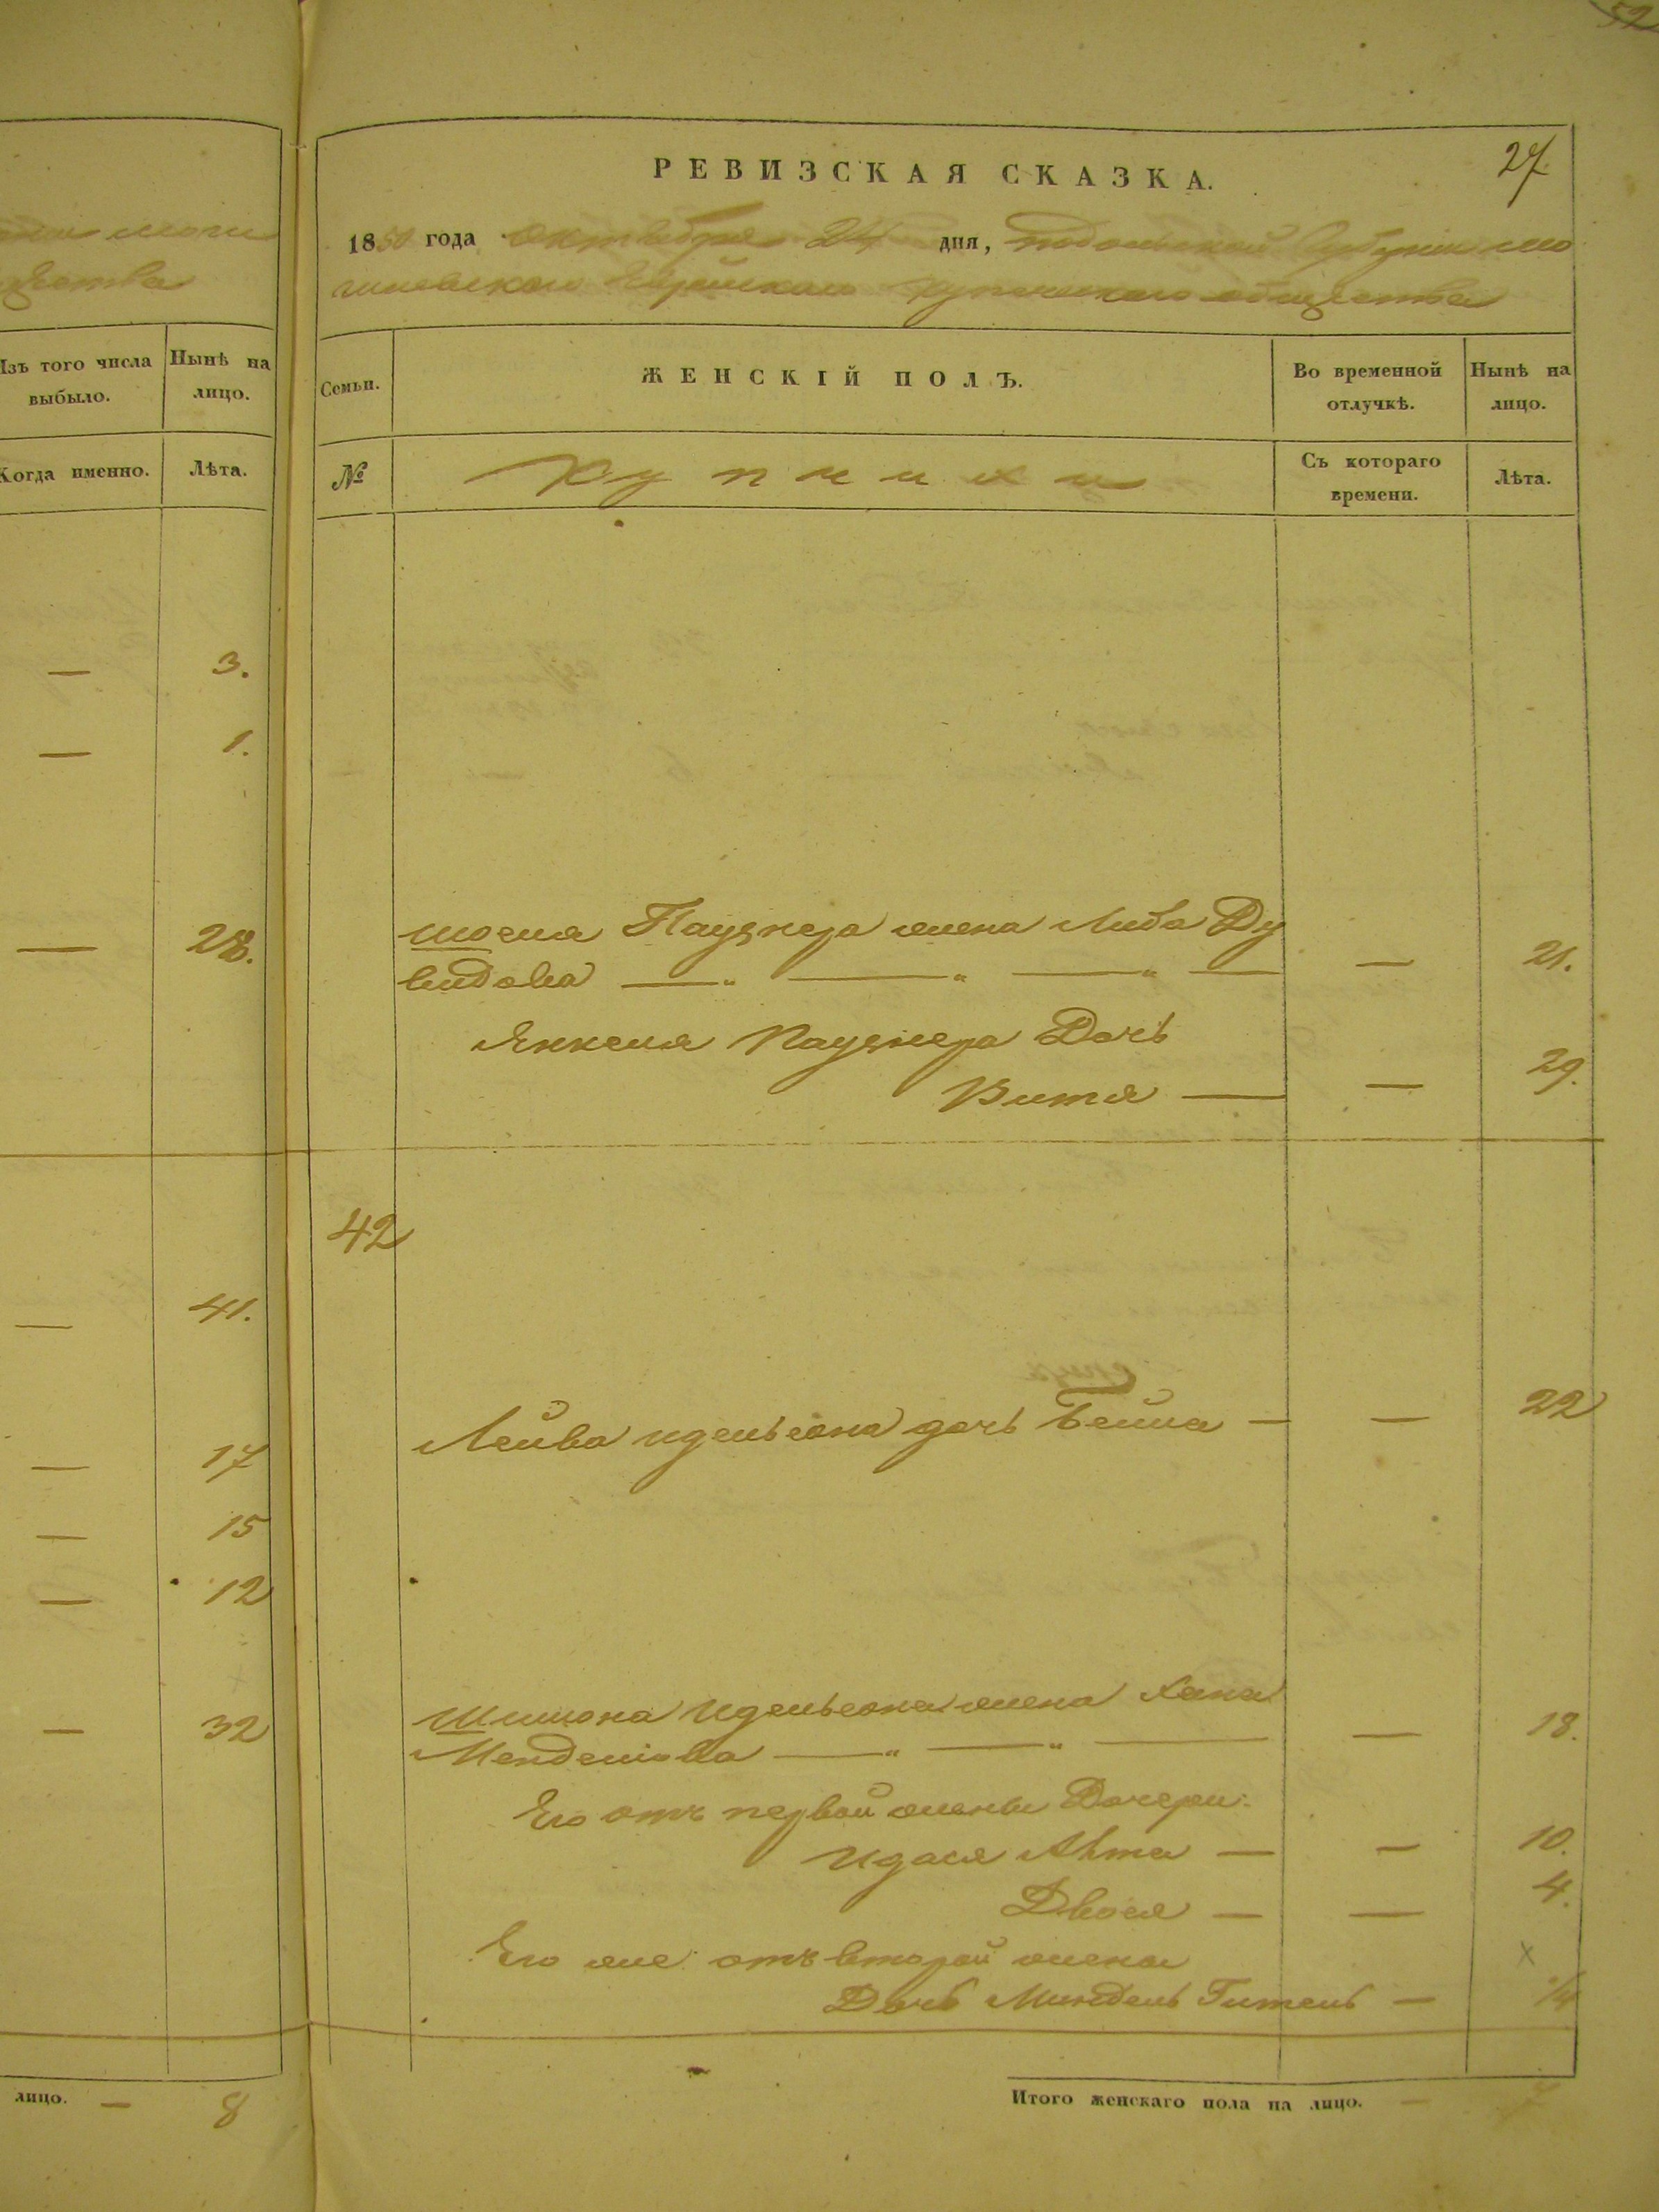 52
27.
РЕВИЗСКАЯ СКАЗКА.
1850 года октября 24 дня, подольской губернии мо
гилевского еврейского купеческого общества
щества
Изъ того числа выбыло.
Нынѣ на лицо.
Когда именно.
Лѣта.
Семьи.
ЖЕНСКІЙ ПОЛЪ.
Во временной отлучкѣ.
Нынѣ на лицо.
№
Купчихи
Съ котораго времени.
Лѣта.
— 3.
— 1.
— 28.
— 41.
— 17
— 15
— 12
— 32
лицо. — 8
жена Либа Ду
видова — „ — „ — „ — — 21.
Янкеля Дочь
Витя — — 29.
42
Лейба дочь Бейла — — 22
Шимона жена Хана
Менделіова — „ — „ — — 18.
Его отъ первой жены Дочери:
— — 10.
Двося — — 4.
Его же отъ второй жены x
Дочь Миндель Гитель — 1/4
Итого женскаго пола на лицо. — 7